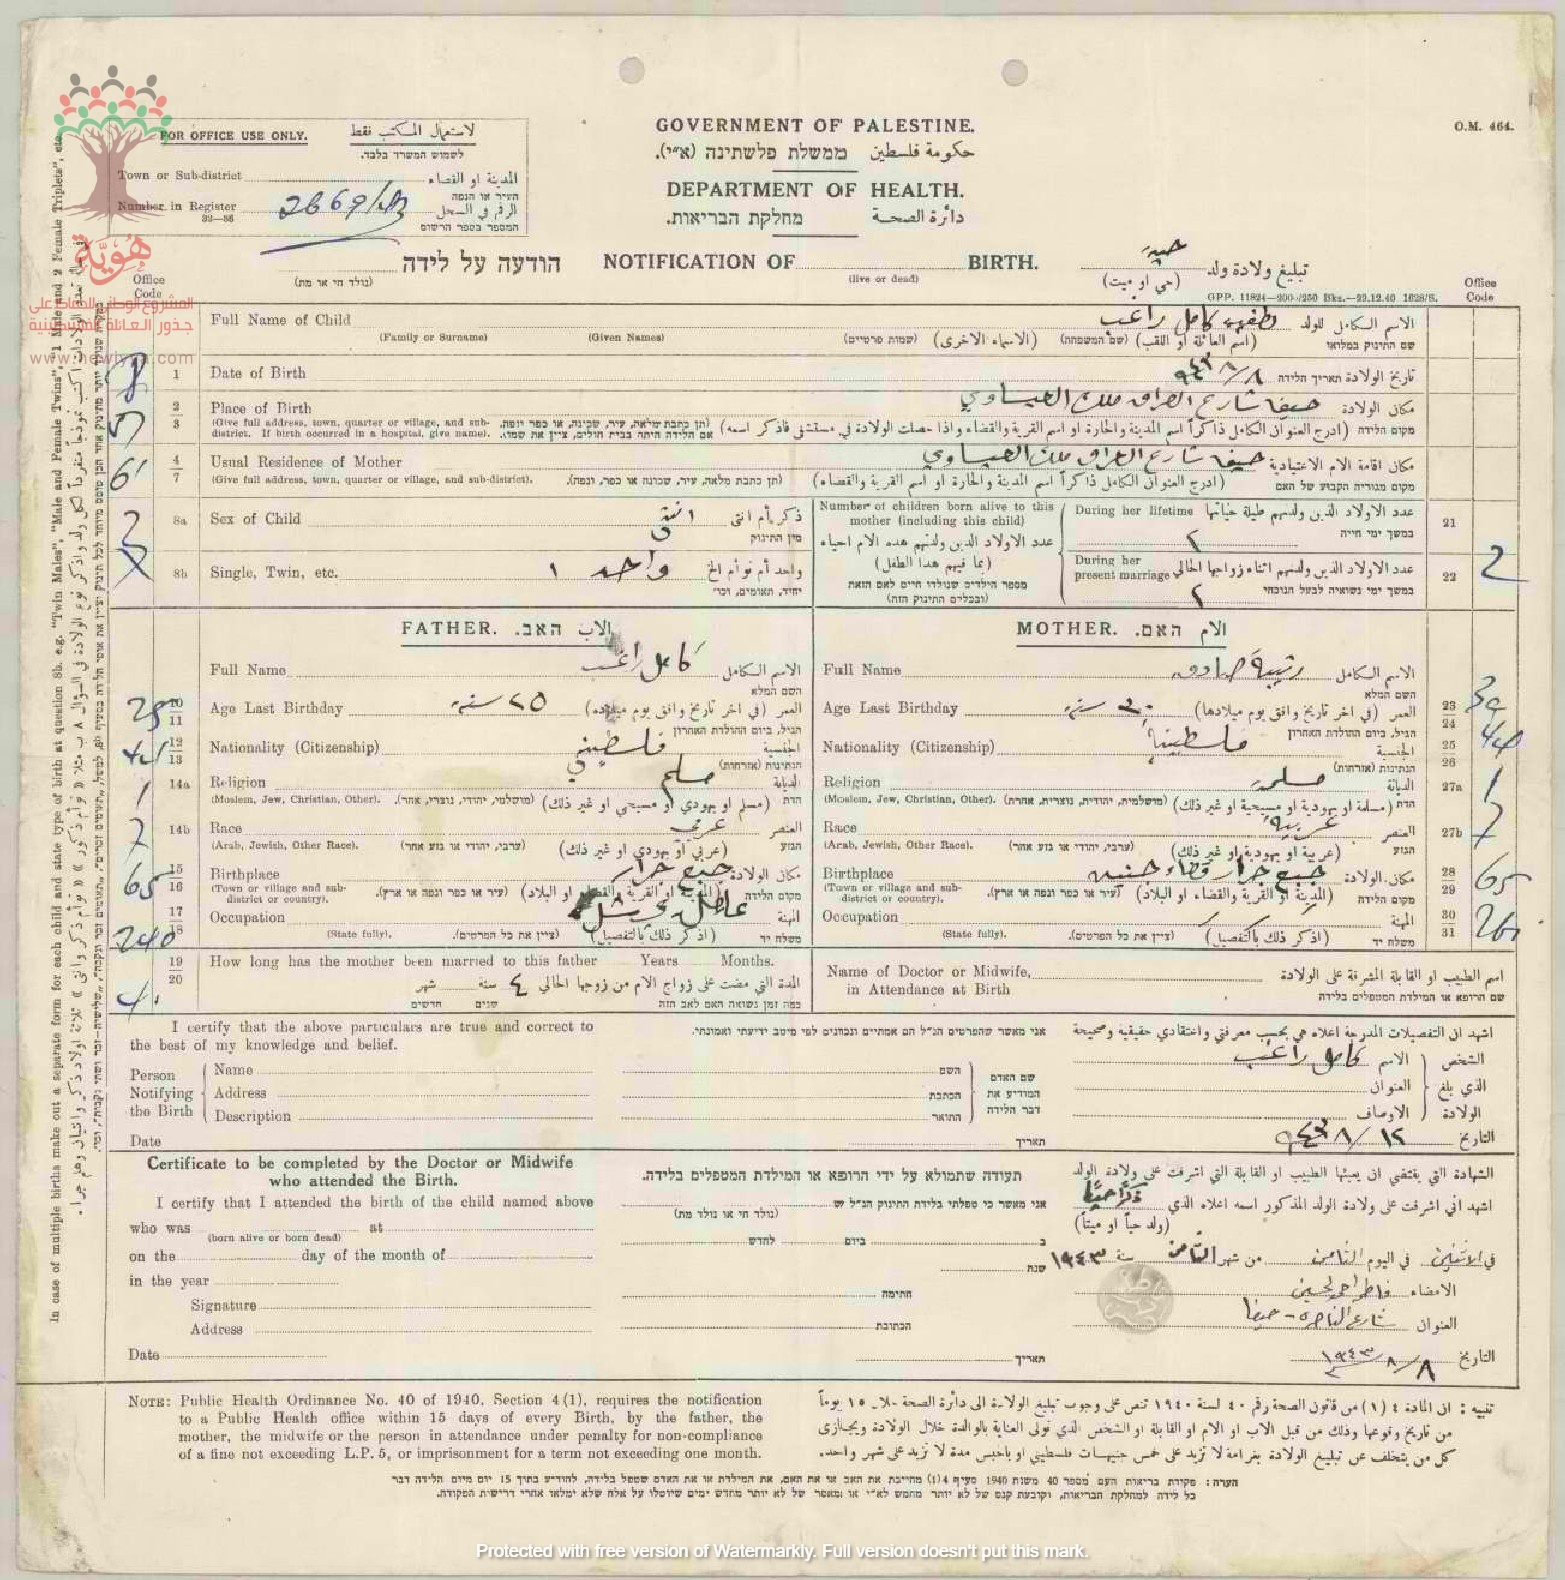 FOR OFFICE USE ONLY. لاستعمال المكتب فقط
לשמוש המשרד בלבד.
Town or Sub-district المدينة او القضاء
העיר או הנפה
Number in Register 2869/43 الرقم في السجل
32—56 המספר בספר הרשום
GOVERNMENT OF PALESTINE.
ממשלת פלשתינה (א״י). حكومة فلسطين
DEPARTMENT OF HEALTH.
מחלקת הבריאות. دائرة الصحة
O.M. 464.
הודעה על לידה NOTIFICATION OF BIRTH. تبليغ ولادة ولد حية
(נולד חי או מת) (live or dead) (حي او ميت)
GPP. 11824—200/250 Bks.—23.12.40 1628/S.
Office Code
Office Code
هويّة
المشروع الوطني للحفاظ على
جذور العائلة الفلسطينية
www.howiyya.com
Full Name of Child كامل راغب الاسم الكامل للولد
(Family or Surname) (Given Names) (שמות פרטיים) (الاسماء الاخرى) (שם המשפחה) (اسم العائلة او اللقب) שם התינוק במלואו
1 Date of Birth ٨/٨/٩٤٣ تاريخ الولادة תאריך הלידה
2 3 Place of Birth حيفا شارع العراق ملك العيساوي مكان الولادة
(Give full address, town, quarter or village, and sub-district. If birth occurred in a hospital, give name). (תן כתבת מלאה, עיר, שכונה, או כפר ונפה. אם הלידה היתה בבית חולים, ציין את שמו). (ادرج العنوان الكامل ذاكراً اسم المدينة والحارة او اسم القرية والقضاء واذا حصلت الولادة في مستشفى فاذكر اسمه) מקום הלידה
4 7 Usual Residence of Mother حيفا شارع العراق ملك العيساوي مكان اقامة الام الاعتيادية
(Give full address, town, quarter or village, and sub-district). (תן כתבת מלאה, עיר, שכונה או כפר, ונפה). (ادرج العنوان الكامل ذاكراً اسم المدينة والحارة او اسم القرية والقضاء) מקום מגוריה הקבוע של האם
8a Sex of Child انثى ذكر أم انثى
מין התינוק
8b Single, Twin, etc. واحد ١ واحد أم توأم الخ
יחיד, תאומים, וכו׳
Number of children born alive to this mother (including this child)
عدد الاولاد الذين ولدتهم هذه الام احياء (بما فيهم هذا الطفل)
מספר הילדים שנולדו חיים לאם הזאת (ובכללם התינוק הזה)
During her lifetime عدد الاولاد الذين ولدتهم طيلة حياتها
٢ במשך ימי חייה 21
During her present marriage عدد الاولاد الذين ولدتهم اثناء زواجها الحالي
٢ במשך ימי נשואיה לבעל הנוכחי 22 2
FATHER. האב. الاب
Full Name كامل راغب الاسم الكامل
השם המלא
25 10 11 Age Last Birthday ٢٥ سنة العمر (في اخر تاريخ وافق يوم ميلاده)
הגיל, ביום ההולדת האחרון
12 13 Nationality (Citizenship) فلسطيني الجنسية
הנתינות (אזרחות)
1 14a Religion مسلم الديانة
(Moslem, Jew, Christian, Other). (מושלמי, יהודי, נוצרי, אחר). (مسلم او يهودي او مسيحي او غير ذلك) הדת
7 14b Race عربي العنصر
(Arab, Jewish, Other Race). (ערבי, יהודי או גזע אחר) (عربي او يهودي او غير ذلك) הגזע
65 15 16 Birthplace جبع جرار مكان الولادة
(Town or village and sub-district or country). (עיר או כפר ונפה או ארץ). (المدينة او القرية والقضاء او البلاد) מקום הלידה
240 17 18 Occupation المهنة
(State fully). (ציין את כל הפרטים). (اذكر ذلك بالتفصيل) משלח יד
MOTHER. האם. الام
Full Name رتيبة صادق الاسم الكامل
השם המלא
Age Last Birthday ٣٠ سنة العمر (في اخر تاريخ وافق يوم ميلادها) 23 24 30
הגיל, ביום ההולדת האחרון
Nationality (Citizenship) فلسطينية الجنسية 25 26
הנתינות (אזרחות)
Religion مسلمة الديانة 27a 1
(Moslem, Jew, Christian, Other). (מושלמית, יהודית, נוצרית, אחרת). (مسلمة او يهودية او مسيحية او غير ذلك) הדת
Race عربية العنصر 27b 7
(Arab, Jewish, Other Race). (ערבי, יהודי או גזע אחר) (عربية او يهودية او غير ذلك) הגזע
Birthplace جبع جرار قضاء جنين مكان الولادة 28 29 65
(Town or village and sub-district or country). (עיר או כפר ונפה או ארץ). (المدينة او القرية والقضاء او البلاد) מקום הלידה
Occupation المهنة 30 31
(State fully). (ציין את כל הפרטים). (اذكر ذلك بالتفصيل) משלח יד
19 20 How long has the mother been married to this father Years Months.
المدة التي مضت على زواج الام من زوجها الحالي ٤ سنة شهر
כמה זמן נשואה האם לאב הזה שנים חדשים
Name of Doctor or Midwife, اسم الطبيب او القابلة المشرفة على الولادة
in Attendance at Birth שם הרופא או המילדת המטפלים בלידה
I certify that the above particulars are true and correct to the best of my knowledge and belief.
אני מאשר שהפרטים הנ״ל הם אמתיים ונכונים לפי מיטב ידיעתי ואמונתי.
اشهد ان التفصيلات المدرجة اعلاه هي بحسب معرفتي واعتقادي حقيقية وصحيحة
Person Notifying the Birth Name Address Description
שם האדם המודיע את דבר הלידה השם הכתבת התואר
الشخص الذي بلغ الولادة الاسم كامل راغب العنوان الاوصاف
Date תאריך التاريخ ١٢/٨/٩٤٣
Certificate to be completed by the Doctor or Midwife who attended the Birth.
תעודה שתמולא על ידי הרופא או המילדת המטפלים בלידה.
الشهادة التي يقتضي ان يعبئها الطبيب او القابلة التي اشرفت على ولادة الولد
I certify that I attended the birth of the child named above
אני מאשר כי טפלתי בלידת התינוק הנ״ל ש
اشهد اني اشرفت على ولادة الولد المذكور اسمه اعلاه الذي
who was at (נולד חי או נולד מת) (ولد حياً او ميتاً)
(born alive or born dead)
on the day of the month of ב ביום לחדש في الاثنين في اليوم الثامن من شهر الثامن سنة ١٩٤٣
in the year שנת
Signature החתימה الامضاء
Address הכתובת العنوان شارع الناصرة - حيفا
Date תאריך التاريخ ٨/٨/١٩٤٣
NOTE: Public Health Ordinance No. 40 of 1940, Section 4(1), requires the notification
to a Public Health office within 15 days of every Birth, by the father, the
mother, the midwife or the person in attendance under penalty for non-compliance
of a fine not exceeding L.P. 5, or imprisonment for a term not exceeding one month.
تنبيه : ان المادة ٤ (١) من قانون الصحة رقم ٤٠ لسنة ١٩٤٠ تنص على وجوب تبليغ الولادة الى دائرة الصحة خلال ١٥ يوماً
من تاريخ وقوعها وذلك من قبل الاب او الام او القابلة او الشخص الذي تولى العناية بالوالدة خلال الولادة ويجازى
كل من يتخلف عن تبليغ الولادة بغرامة لا تزيد على خمس جنيهات فلسطيني او بالحبس مدة لا تزيد على شهر واحد.
הערה: פקודת בריאות העם מספר 40 משנת 1940 סעיף 4(1) מחייבת את האב או את האם, את המילדת או את האדם שטפל בלידה, להודיע בתוך 15 יום מיום הלידה דבר
כל לידה למחלקת הבריאות, וקובעת קנס של לא יותר מחמש לא״י או מאסר של לא יותר מחדש ימים שיוטלו על אלה שלא ימלאו אחרי דרישת הפקודה.
In case of multiple births make out a separate form for each child and state type of birth at question 8b. e.g. "Twin Males", "Male and Female Twins", "1 Male and 2 Female Triplets", etc.
Protected with free version of Watermarkly. Full version doesn't put this mark.